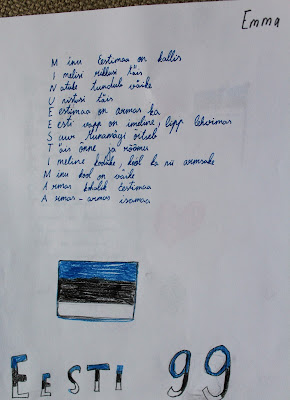 Emma
Minu Eestimaa on kallis
Imelisi rikkusi täis
Natuke tundub väike
Unistusi täis
Eestimaa on armas ka
Eesti vapp on imeline, lipp lehvimas
Suur Munamägi õitseb
Täis õnne ja rõõmu
Imeline koduke, kool ka nii armsake
Minu kool on väike
Armas kohalik Eestimaa
Armas-armas isamaa
EESTI 99